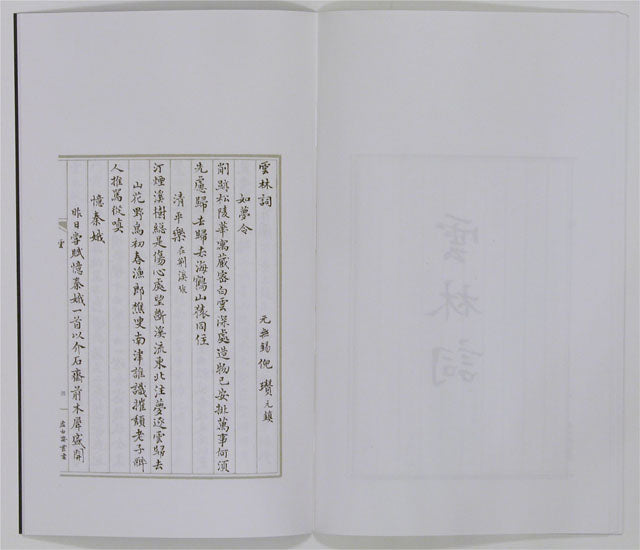 雲林詞　元無錫倪瓚元鎮
如夢令
削跡松陵華寓藏密白雲深處造物已安排萬事何須
先慮歸去歸去海鶴山猿同住
清平樂 在荊溪作
汀煙溪樹總是傷心處望斷溪流東北注夢逐雲歸去
山花野鳥初春漁郎樵叟南津誰識摧頹老子醉
人推罵從嗔
憶秦娥
昨日嘗賦憶秦娥一首以介石齋前木犀盛開